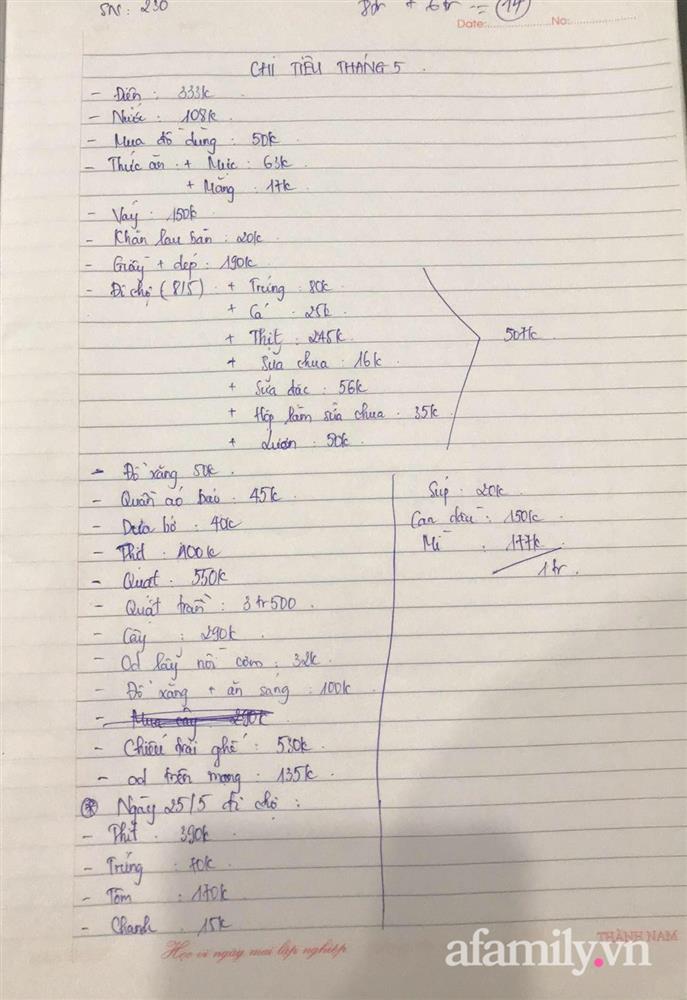 SN: 230
8tr + 6tr = 14
Date: No:
CHI TIÊU THÁNG 5.
- Điện : 333k
- Nước : 108k
- Mua đồ dùng : 50k
- Thức ăn : + Mực : 63k
+ Măng : 17k
- Váy : 150k
- Khăn lau bàn : 20k
- Giầy + dép : 190k
- Đi chợ (8/5) : + Trứng : 80k
+ Cá : 25k
+ Thịt : 245k
+ Sữa chua : 16k
+ Sữa đặc : 56k
+ Hộp làm sữa chua : 35k
+ Lươn : 50k
507k
- Đổ xăng 50k
- Quần áo báo : 45k
- Dưa bở : 40k
- Thịt : 100k
- Quạt : 550k
- Quạt trần : 3tr500
- Cây : 290k
- Od lấy nồi cơm : 32k
- Đổ xăng + ăn sáng : 100k
- Mua cây : 290k
- Chiếu trải ghế : 530k
- od trên mạng : 135k
* Ngày 25/5 đi chợ :
- Thịt : 390k
- Trứng : 70k
- Tôm : 170k
- Chanh : 15k
Súp : 20k
Can dầu : 150k
Mì : 177k
1tr.
Học vì ngày mai lập nghiệp
THÀNH NAM
afamily.vn